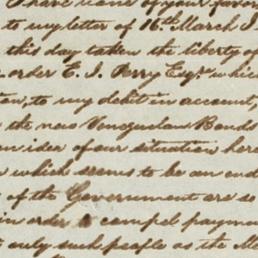 I have none of your favor
to my letter of 16th March I
this day taken the liberty of
order E. J. Perry Esqr. which
to my debit in account,
the new Venezuelan Bonds
idea of our situation here
which seems to be an end
of the Government are so
in order to compel payment
only such people as the